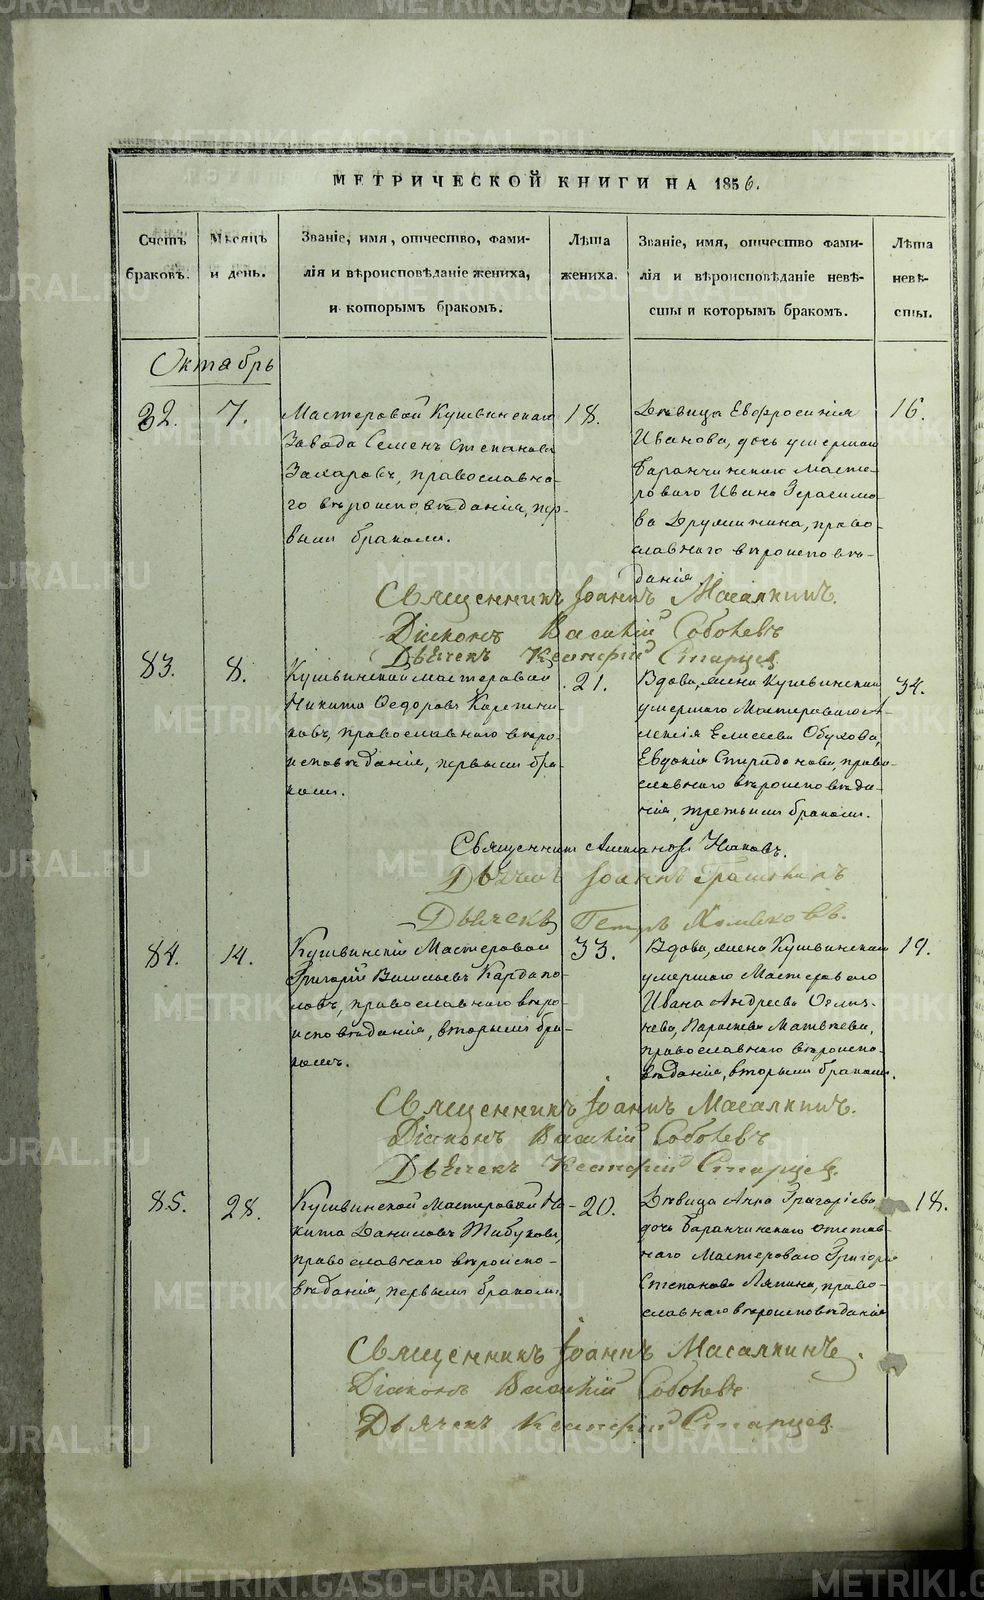 МЕТРИЧЕСКОЙ КНИГИ НА 1856.
Счетъ браковъ.
Мѣсяцъ и день.
Званіе, имя, отчество, фами-
лія и вѣроисповѣданіе жениха,
и которымъ бракомъ.
Лѣта жениха.
Званіе, имя, отчество фами-
лія и вѣроисповѣданіе невѣ-
сты и которымъ бракомъ.
Лѣта невѣ-
сты.
Октябрь
82.
7.
Мастеровой Кушвинскаго
Завода Семенъ Степановъ
Захаровъ, православна-
го вѣроисповѣданія, пер-
вымъ бракомъ.
18.
Дѣвица Евфросинія
Иванова, дочь умершаго
Баранчинскаго Масте-
роваго Ивана Герасимо-
ва Дружинина, право-
славнаго вѣроисповѣ-
данія
16.
Священникъ Іоаннъ Масалкинъ.
Діаконъ Василій Соболевъ
Дьячекъ Старцев
83.
8.
Кушвинской мастеровой
Никита Ѳедоровъ
православнаго вѣро-
исповѣданія, первымъ бра-
комъ.
21.
Вдова, жена Кушвинскаго
умершаго Мастероваго А-
лексія Елисеева Обухова,
Евдокія Спиридонова, право-
славнаго вѣроисповѣда-
нія, третьимъ бракомъ.
34.
Священникъ
Дьячекъ Іоаннъ
Дьячекъ Петръ Хомяковъ.
84.
14.
Кушвинскій Мастеровой
Григорій Васильевъ Кардапо-
ловъ, православнаго вѣро-
исповѣданія, вторымъ бра-
комъ.
33.
Вдова, жена Кушвинскаго
умершаго Мастероваго
Ивана Андреева
Параскева Матвѣева,
православнаго вѣроиспо-
вѣданія, вторымъ бракомъ.
19.
Священникъ Іоаннъ Масалкинъ.
Діаконъ Василій Соболевъ
Дьячекъ Старцев.
85.
28.
Кушвинской Мастеровой Ни-
кита Даниловъ
православнаго вѣроиспо-
вѣданія, первымъ бракомъ.
20.
Дѣвица Анна Григоріева,
дочь Баранчинскаго отстав-
наго Мастероваго Григорія
Степанова Ляпина, право-
славнаго вѣроисповѣданія
18.
Священникъ Іоаннъ Масалкинъ.
Діаконъ Василій Соболевъ
Дьячекъ Старцев.
METRIKI.GASO-URAL.RU